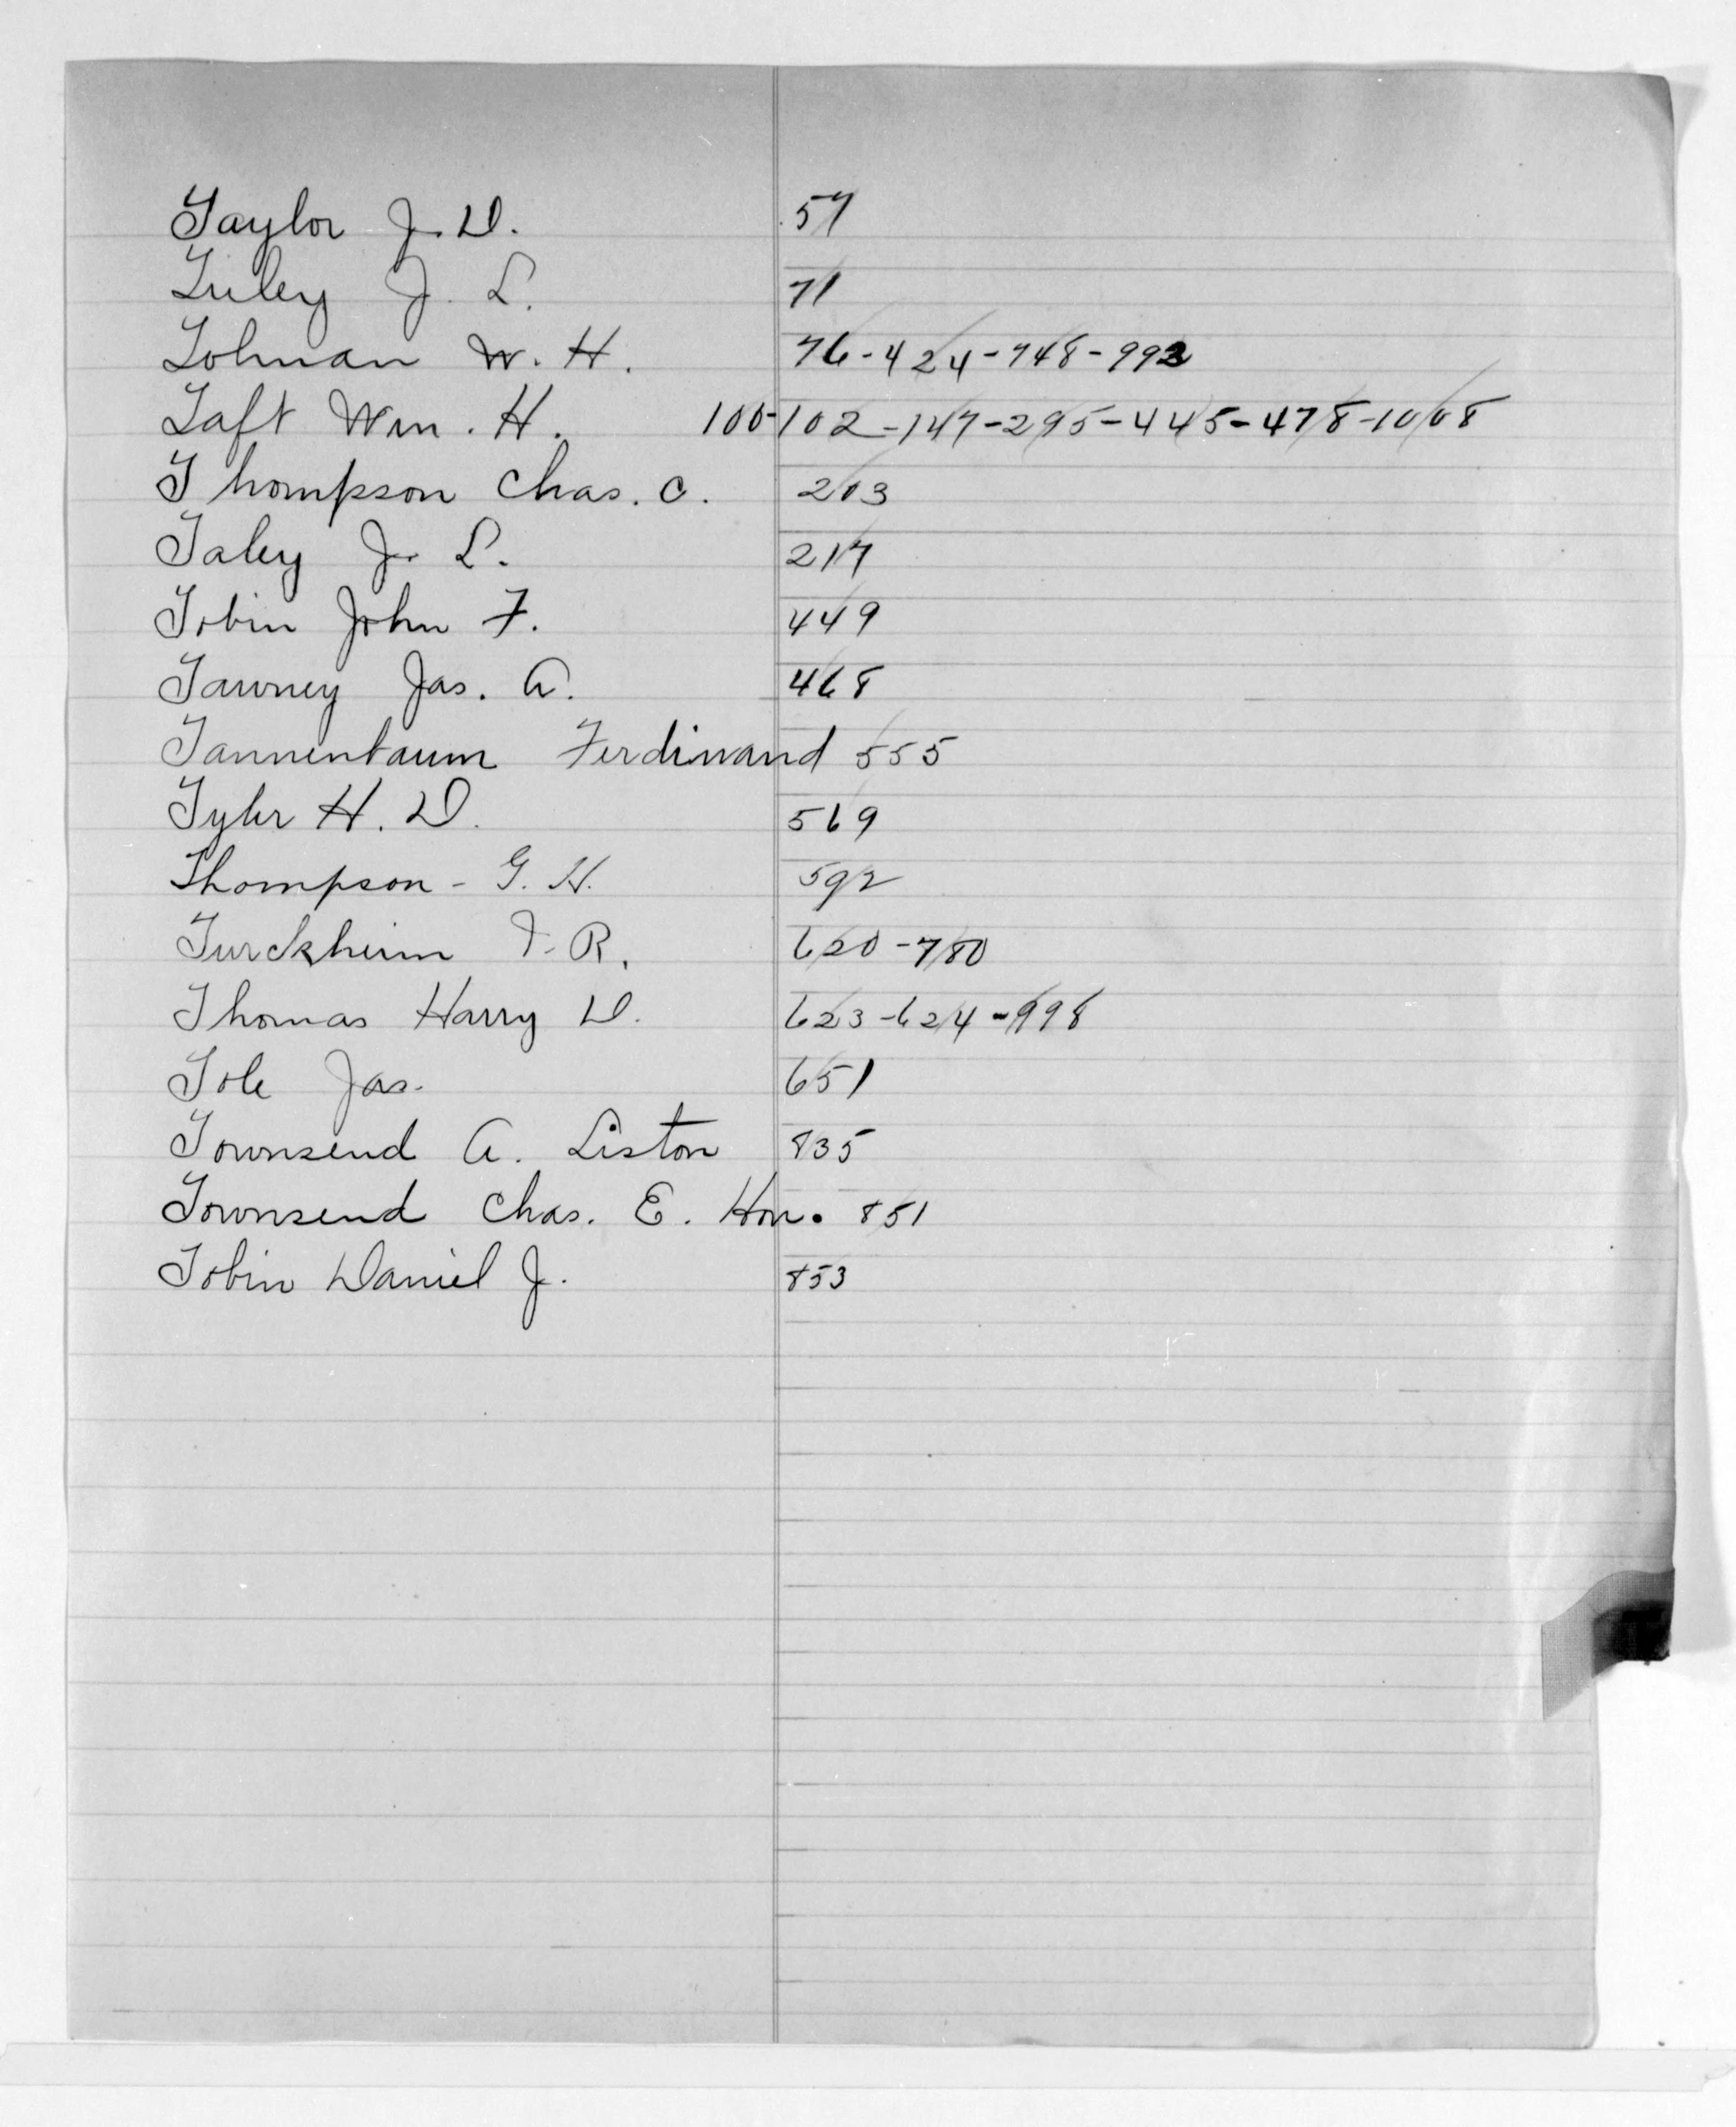 Taylor J. D. 57
Tuley J. L. 71
Tolman W. H. 76-424-748-992
Taft Wm. H. 100-102-147-295-445-478-1008
Thompson Chas. C. 203
Taley J. L. 217
Tobin John F. 449
Tawney Jas. A. 468
Tannenbaum Ferdinand 555
Tyler H. D. 569
Thompson - G. H. 592
Turckheim F. R. 620-780
Thomas Harry D. 623-624-998
Tole Jas. 651
Townsend A. Liston 835
Townsend Chas. E. Hon. 851
Tobin Daniel J. 853